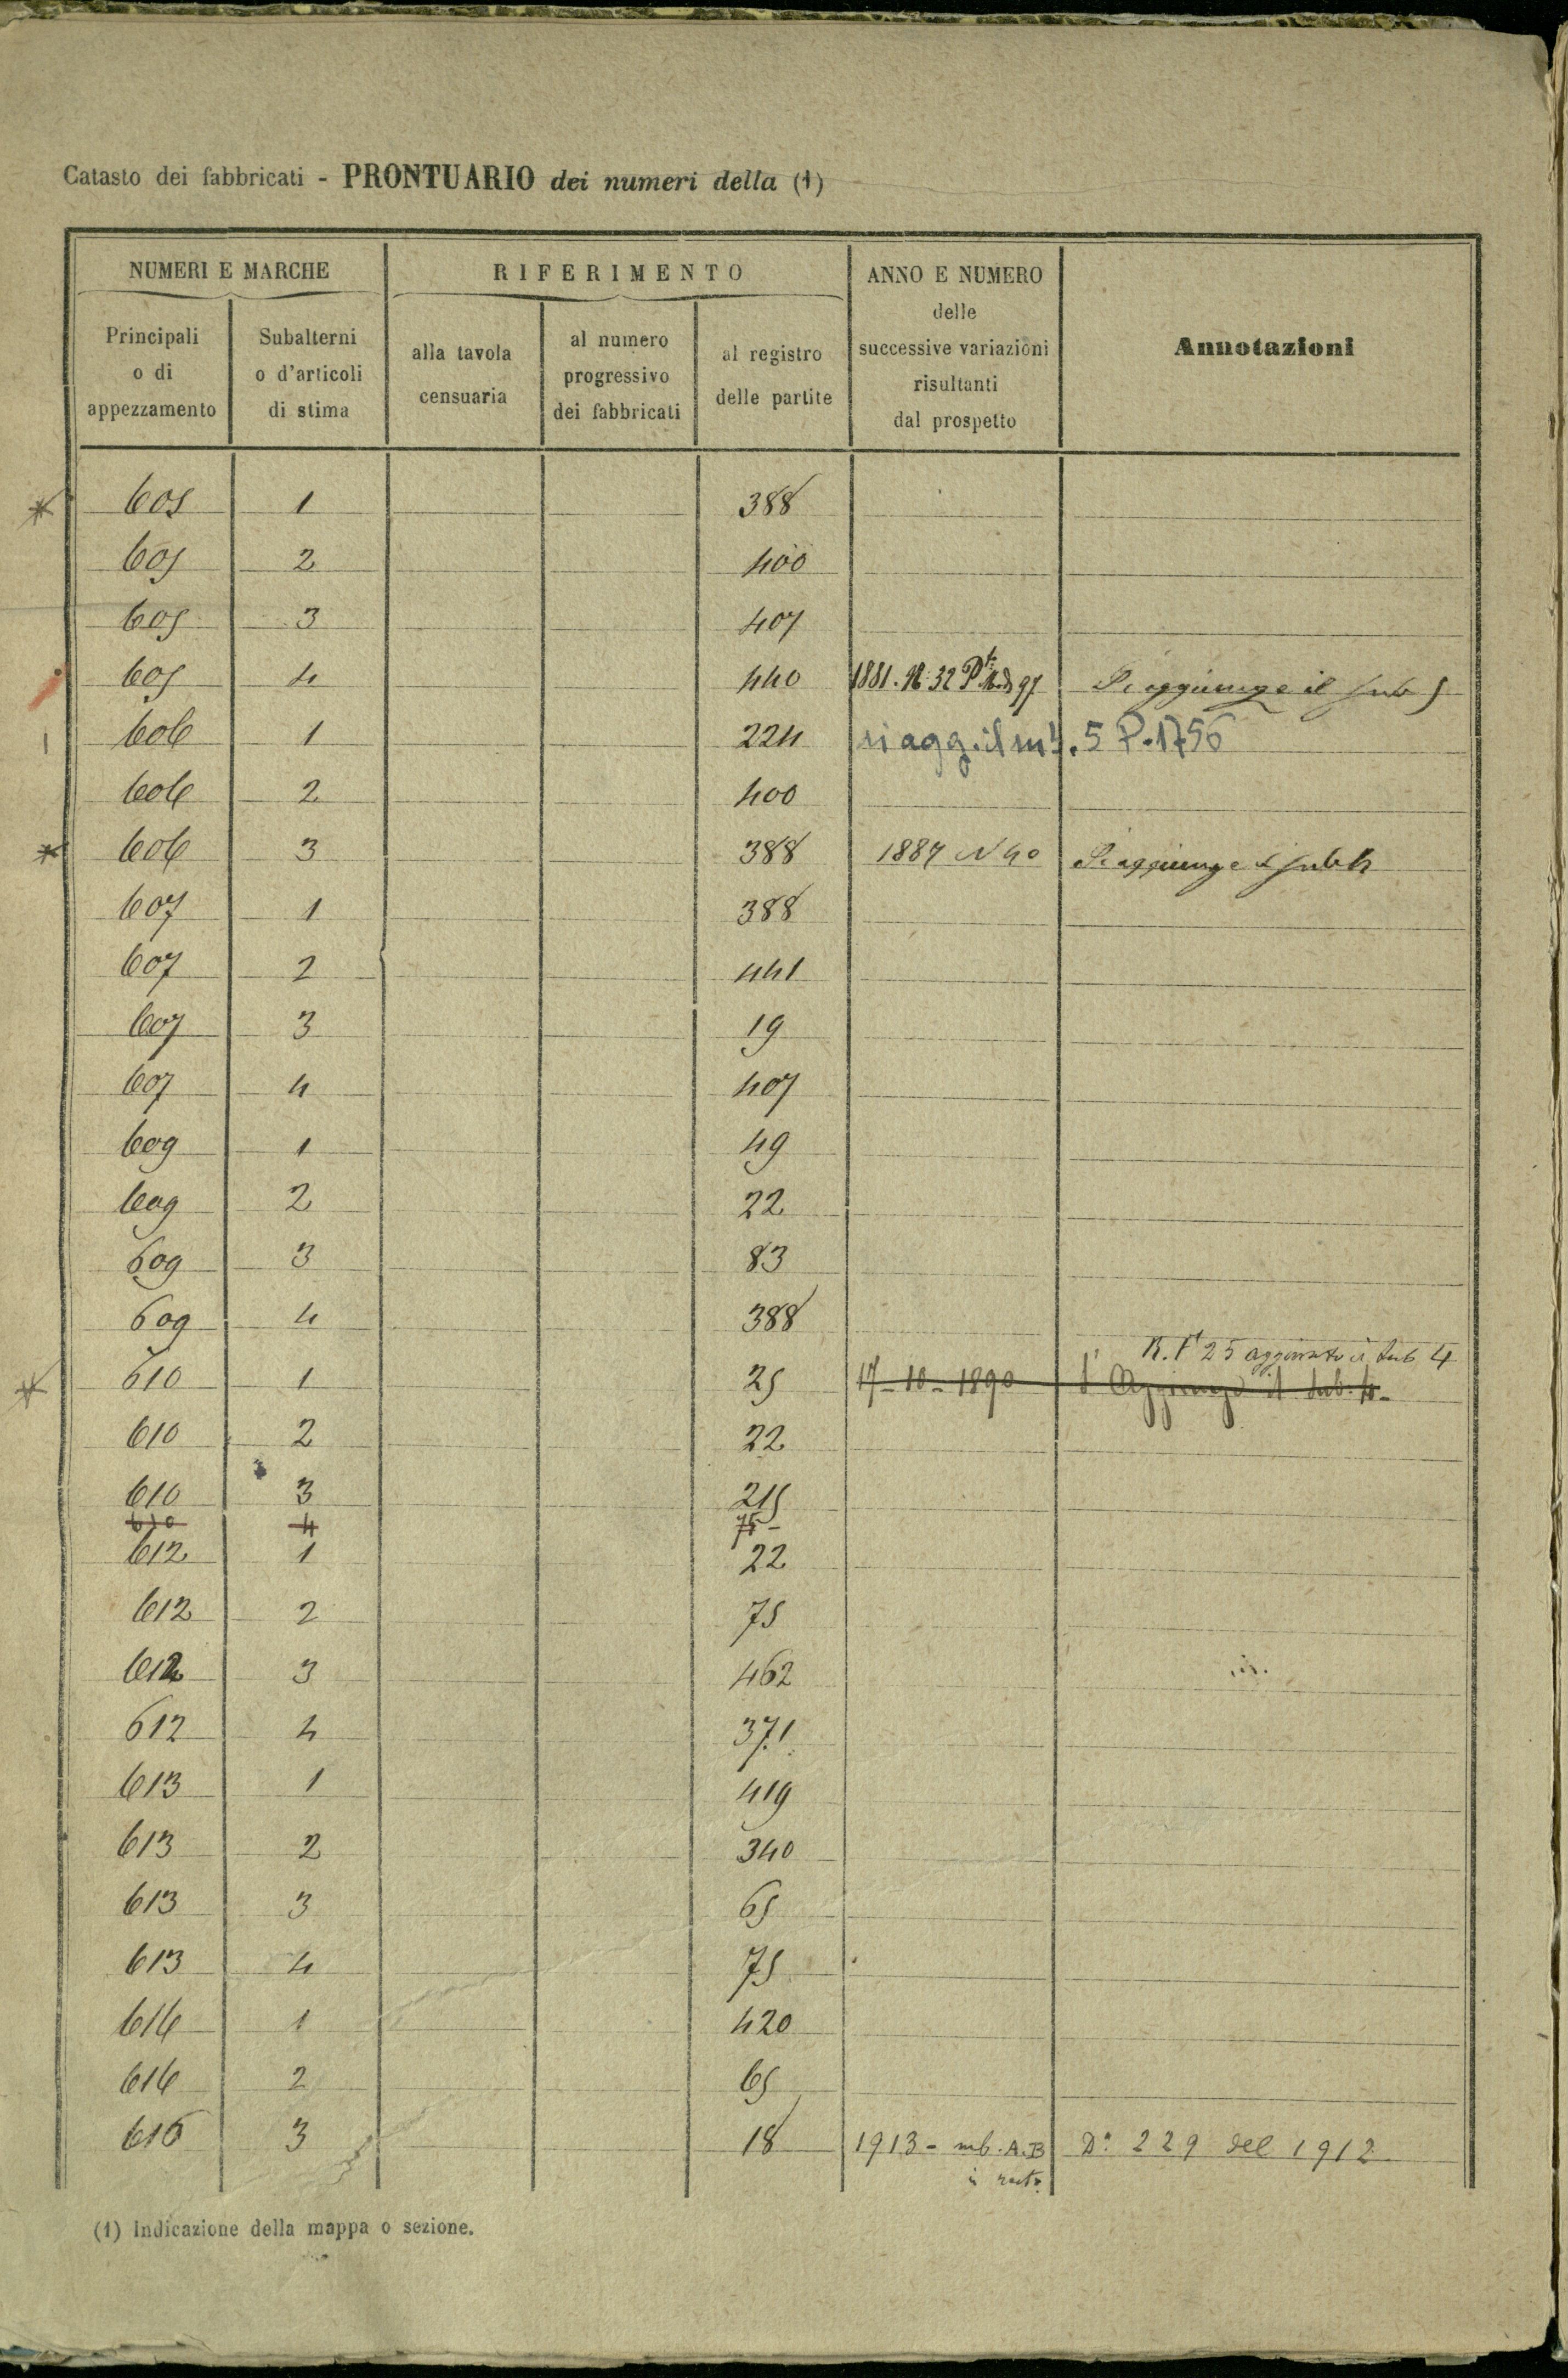 Catasto dei fabbricati - PRONTUARIO dei numeri della (1)
NUMERI E MARCHE
RIFERIMENTO
ANNO E NUMERO
delle
successive variazioni
risultanti
dal prospetto
Annotazioni
Principali
o di
appezzamento
Subalterni
o d'articoli
di stima
alla tavola
censuaria
al numero
progressivo
dei fabbricati
al registro
delle partite
605 1 388
605 2 400
605 3 407
605 4 440 1881. 32 Si aggiunge il sub 5
606 1 224 si agg. il 5 P. 1756
606 2 400
606 3 388 1887 N 40 Si aggiunge il sub 4
607 1 388
607 2 441
607 3 19
607 4 407
609 1 49
609 2 22
609 3 83
609 4 388
25 sub 4
610 1 25 17-10-1890 Aggiunge il sub. 4-
610 2 22
610 3 215
610 4 75-
612 1 22
612 2 75
612 3 462
612 4 371
613 1 419
613 2 340
613 3 65
613 4 75
616 1 420
616 2 65
616 3 18 1913- sub. A.B Da 229 del 1912
(1) Indicazione della mappa o sezione.